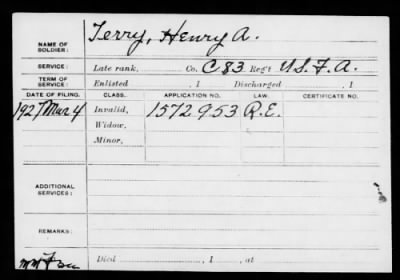 NAME OF SOLDIER: Terry, Henry A.
SERVICE: Late rank, Co. C 83 Reg't U.S.F.A.
TERM OF SERVICE: Enlisted , 1 Discharged , 1
DATE OF FILING. CLASS. APPLICATION NO. LAW. CERTIFICATE NO.
1927 Mar 4 Invalid, 1572953 R.E.
Widow,
Minor,
ADDITIONAL SERVICES:
REMARKS:
Died , 1 , at